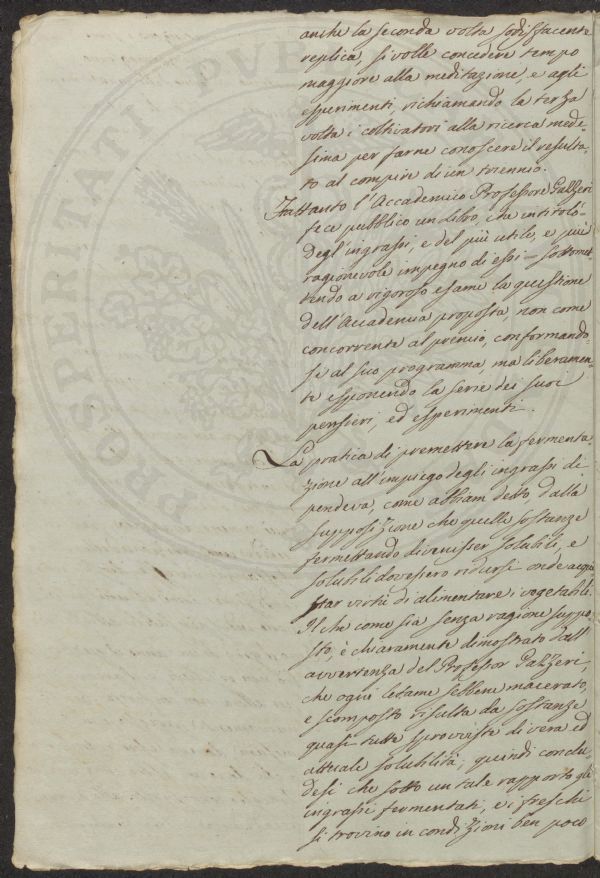 anche la seconda volta sodisfacente
replica, si volle concedere tempo
maggiore alla meditazione, e agli
esperimenti, richiamando la terza
volta i coltivatori alla ricerca mede-
sima per farne conoscere il resulta-
to al compire di un triennio.
Frattanto l'Accademico Professore Gazzeri
fece pubblico un libro, che intitolò
Degl'ingrassi, e del più utile, e più
ragionevole impiego di essi — sottomet
tendo a vigoroso esame la questione
dell'Accademia proposta, non come
concorrente al premio, conformando-
si al suo programma, ma liberamen-
te esponendo la serie dei suoi
pensieri, ed esperimenti.
La pratica di premettere la fermenta-
zione all'impiego degli ingrassi di
pendeva, come abbiam detto dalla
supposizione che quelle sostanze
fermettando divenisser solubili, e
solubili dovessero ridursi onde acqui
star virtù di alimentare i vegetabili.
Il che come sia senza ragione suppo-
sto, è chiaramente dimostrato dall'
avvertenza del Professor Gazzeri,
che ogni letame sebbene macerato,
e scomposto risulta da sostanze
quasi tutte sprovviste di vera ed
attuale solubilità; quindi conclu-
desi che sotto un tale rapporto gli
ingrassi fermentati, e i freschi
si trovino in condizioni ben poco
PROSPERITATI PVB